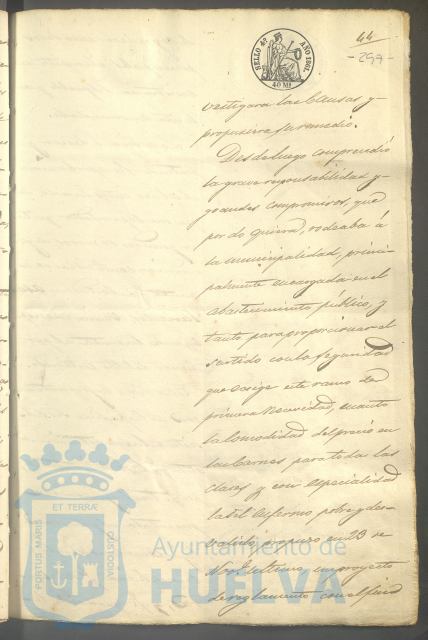 SELLO 4º AÑO 1861.
40 Ms
44
-297-
vestigara las causas y
propusiera su remedio.
Desde luego comprendió
la grave responsabilidad y
grandes compromisos, que
por do quiera, rodeaba á
la municipalidad, princi-
palmente encargada en el
abastecimiento público, y
tanto para proporcionar el
surtido con la seguridad
que exige este ramo de
primera necesidad, cuanto
la comodidad del precio en
las carnes para todas las
clases y con especialidad
la del enfermo pobre y des-
valido, propuso en 23 de
Nov.e último, un proyecto
de reglamento con el fin
ET TERRÆ
PORTUS MARIS
CUSTODIA
Ayuntamiento de
HUELVA